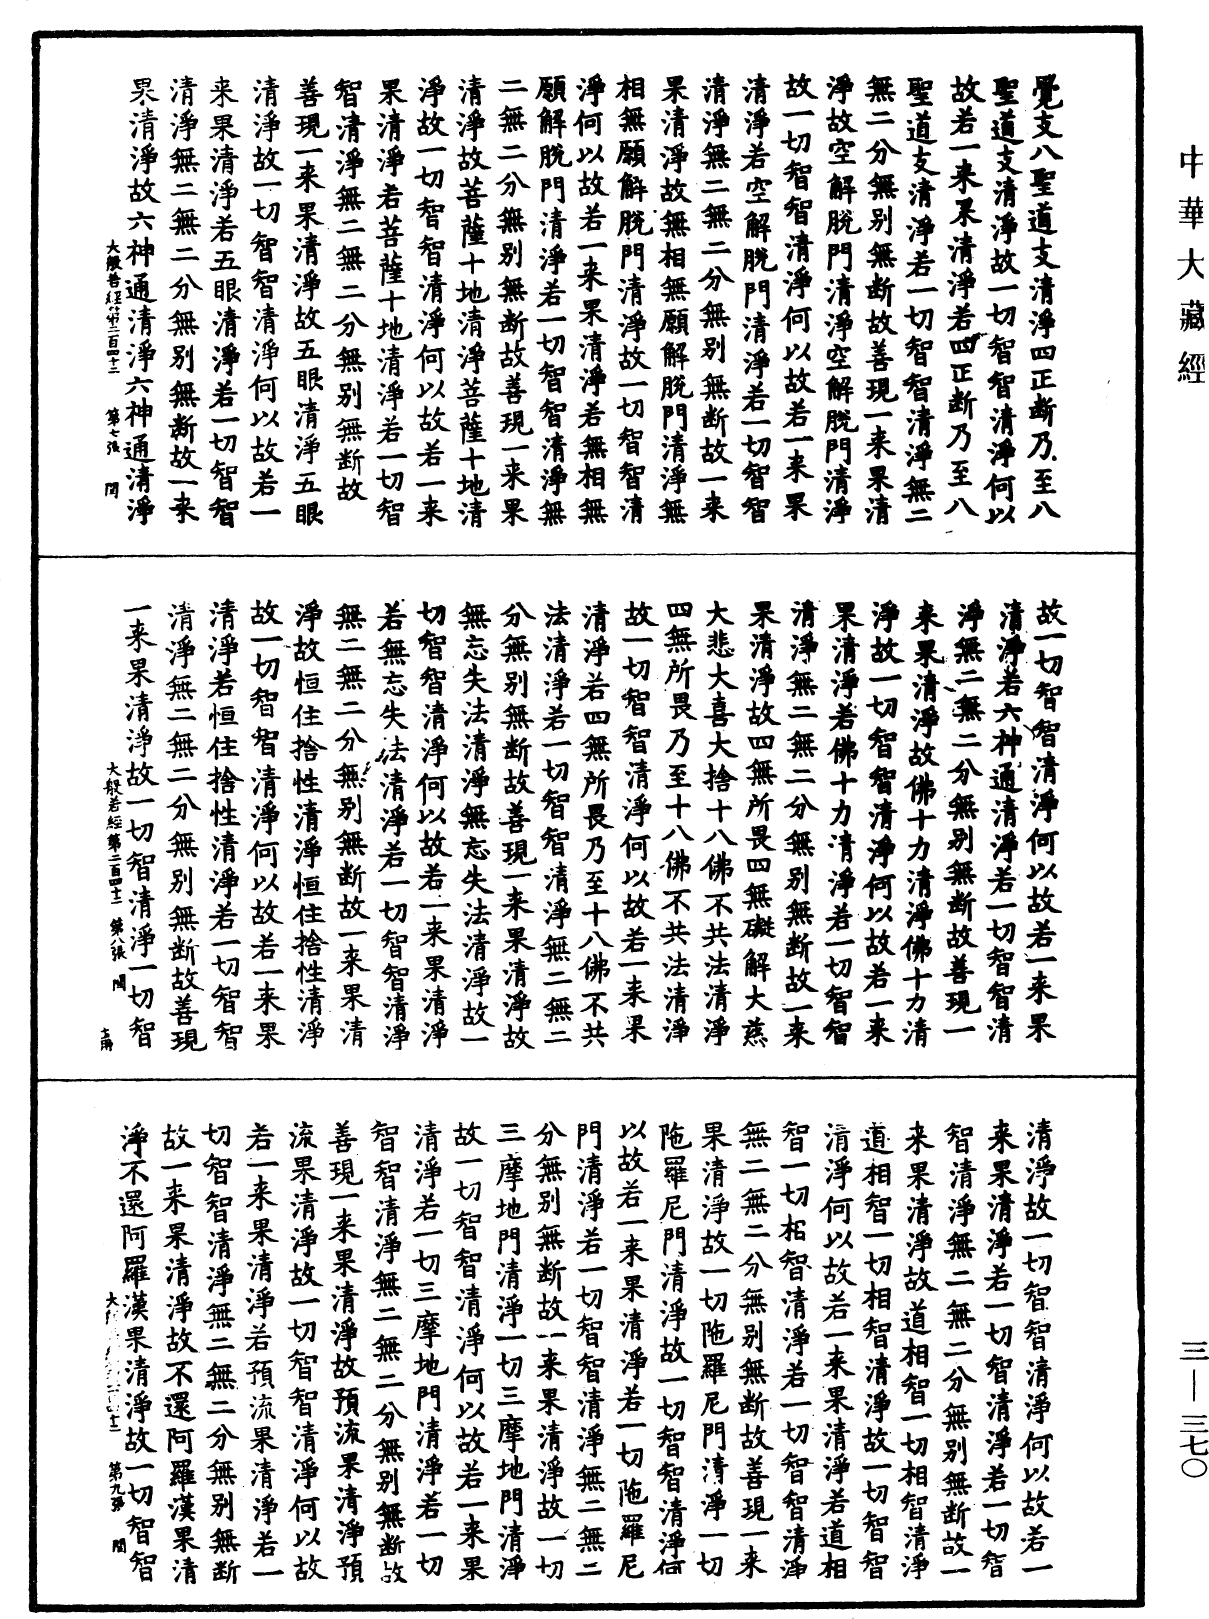 中華大藏經
覺支八聖道支清淨四正斷乃至八
聖道支清淨故一切智智清淨何以
故若一来果清淨若四正斷乃至八
聖道支清淨若一切智智清淨無二
無二分無别無斷故善現一来果清
淨故空解脫門清淨空解脫門清淨
故一切智智清淨何以故若一来果
清淨若空解脫門清淨若一切智智
清淨無二無二分無别無斷故一来
果清淨故無相無願解脫門清淨無
相無願解脫門清淨故一切智智清
淨何以故若一来果清淨若無相無
願解脫門清淨若一切智智清淨無
二無二分無别無斷故善現一来果
清淨故菩薩十地清淨菩薩十地清
淨故一切智智清淨何以故若一来
果清淨若菩薩十地清淨若一切智
智清淨無二無二分無别無斷故
善現一来果清淨故五眼清淨五眼
清淨故一切智智清淨何以故若一
来果清淨若五眼清淨若一切智智
清淨無二無二分無别無斷故一来
果清淨故六神通清淨六神通清淨
大般若經第二百四十二 第七張 閏
故一切智智清淨何以故若一来果
清淨若六神通清淨若一切智智清
淨無二無二分無别無斷故善現一
来果清淨故佛十力清淨佛十力清
淨故一切智智清淨何以故若一来
果清淨若佛十力清淨若一切智智
清淨無二無二分無别無斷故一来
果清淨故四無所畏四無礙解大慈
大悲大喜大捨十八佛不共法清淨
四無所畏乃至十八佛不共法清淨
故一切智智清淨何以故若一来果
清淨若四無所畏乃至十八佛不共
法清淨若一切智智清淨無二無二
分無别無斷故善現一来果清淨故
無忘失法清淨無忘失法清淨故一
切智智清淨何以故若一来果清淨
若無忘失法清淨若一切智智清淨
無二無二分無别無斷故一来果清
淨故恒住捨性清淨恒住捨性清淨
故一切智智清淨何以故若一来果
清淨若恒住捨性清淨若一切智智
清淨無二無二分無别無斷故善現
一来果清淨故一切智清淨一切智
大般若經第二百四十二 第八張 閏
清淨故一切智智清淨何以故若一
来果清淨若一切智清淨若一切智
智清淨無二無二分無别無斷故一
来果清淨故道相智一切相智清淨
道相智一切相智清淨故一切智智
清淨何以故若一来果清淨若道相
智一切相智清淨若一切智智清淨
無二無二分無别無斷故善現一来
果清淨故一切陁羅尼門清淨一切
陁羅尼門清淨故一切智智清淨何
以故若一来果清淨若一切陁羅尼
門清淨若一切智智清淨無二無二
分無别無斷故一来果清淨故一切
三摩地門清淨一切三摩地門清淨
故一切智智清淨何以故若一来果
清淨若一切三摩地門清淨若一切
智智清淨無二無二分無别無斷故
善現一来果清淨故預流果清淨預
流果清淨故一切智智清淨何以故
若一来果清淨若預流果清淨若一
切智智清淨無二無二分無别無斷
故一来果清淨故不還阿羅漢果清
淨不還阿羅漢果清淨故一切智智
第九張 閏
三—三七〇